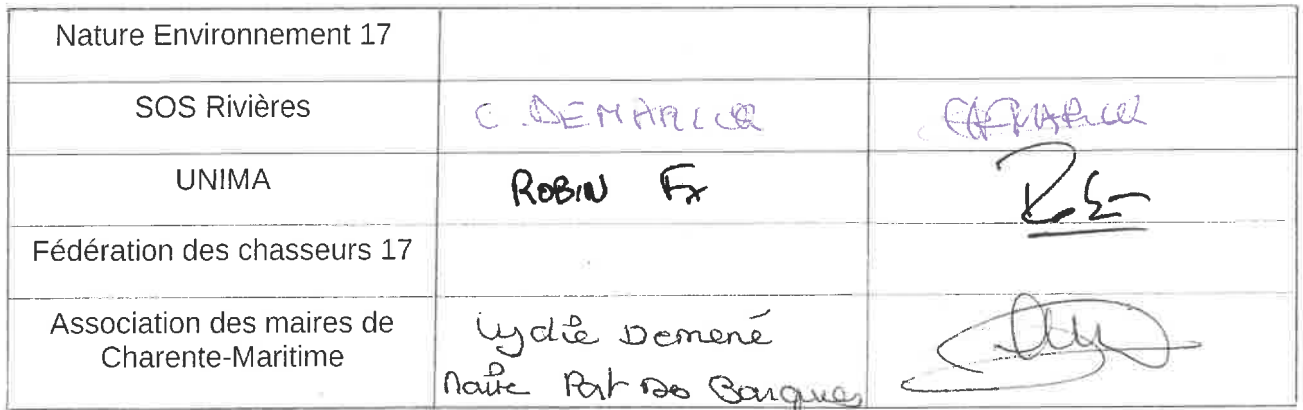 Nature Environnement 17
SOS Rivières C. DEMARICQ
UNIMA ROBIN Fx
Fédération des chasseurs 17
Association des maires de Lydie Demené
Charente-Maritime Maire Port des Barques